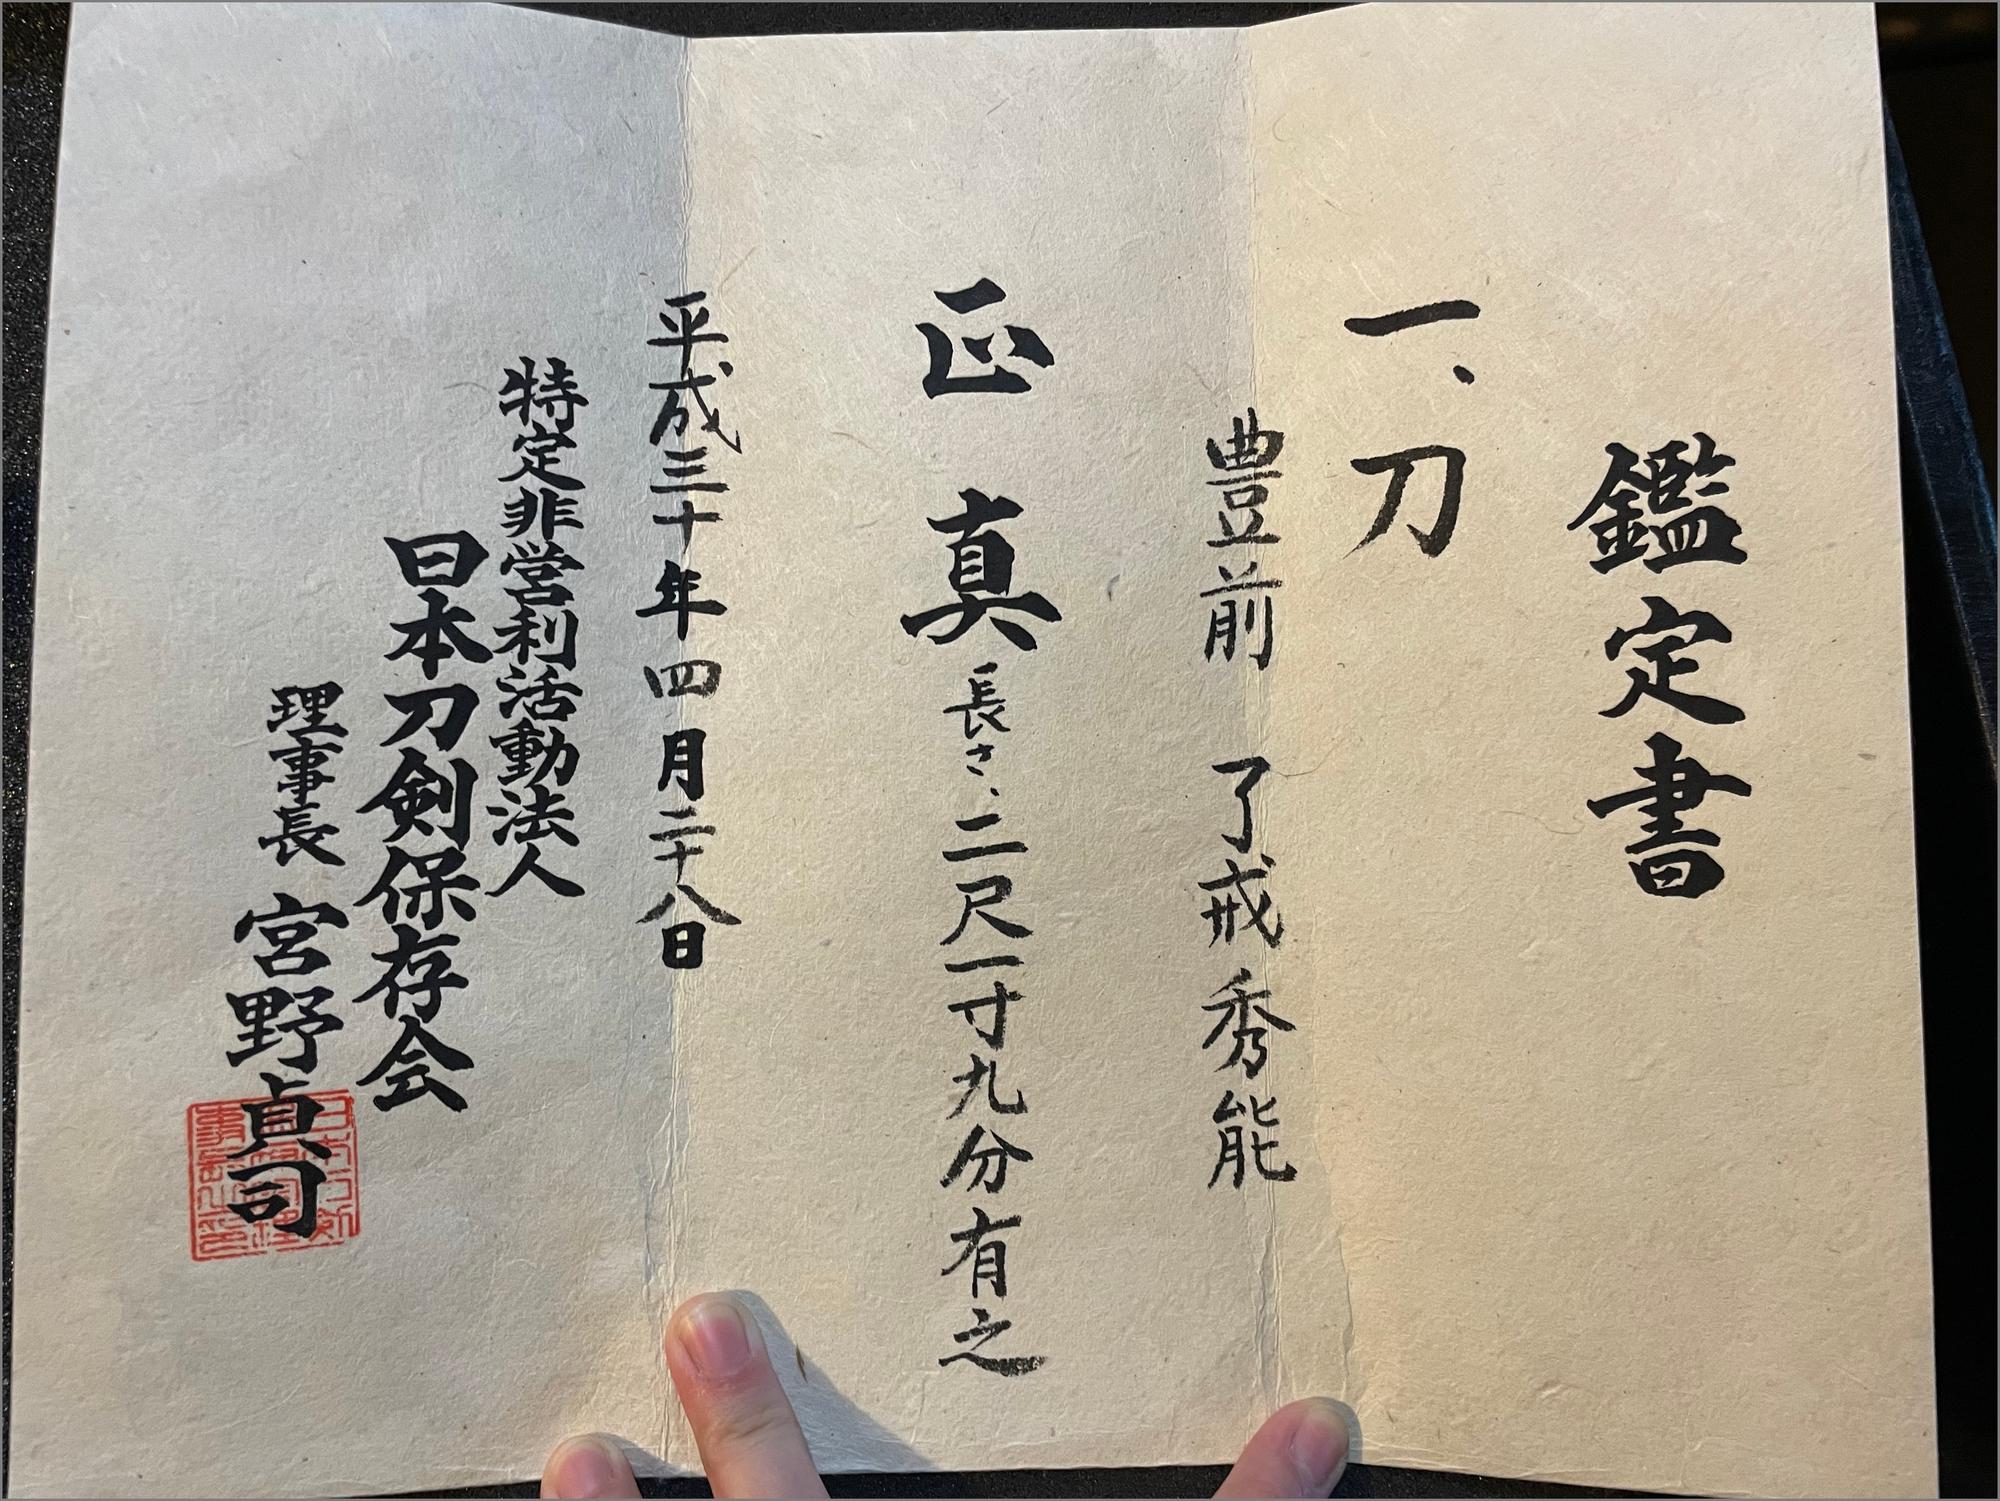 鑑定書
一、刀
豊前 了戒秀能
正真 長さ、二尺一寸九分有之
平成三十年四月二十八日
特定非営利活動法人
日本刀剣保存会
理事長 宮野貞司